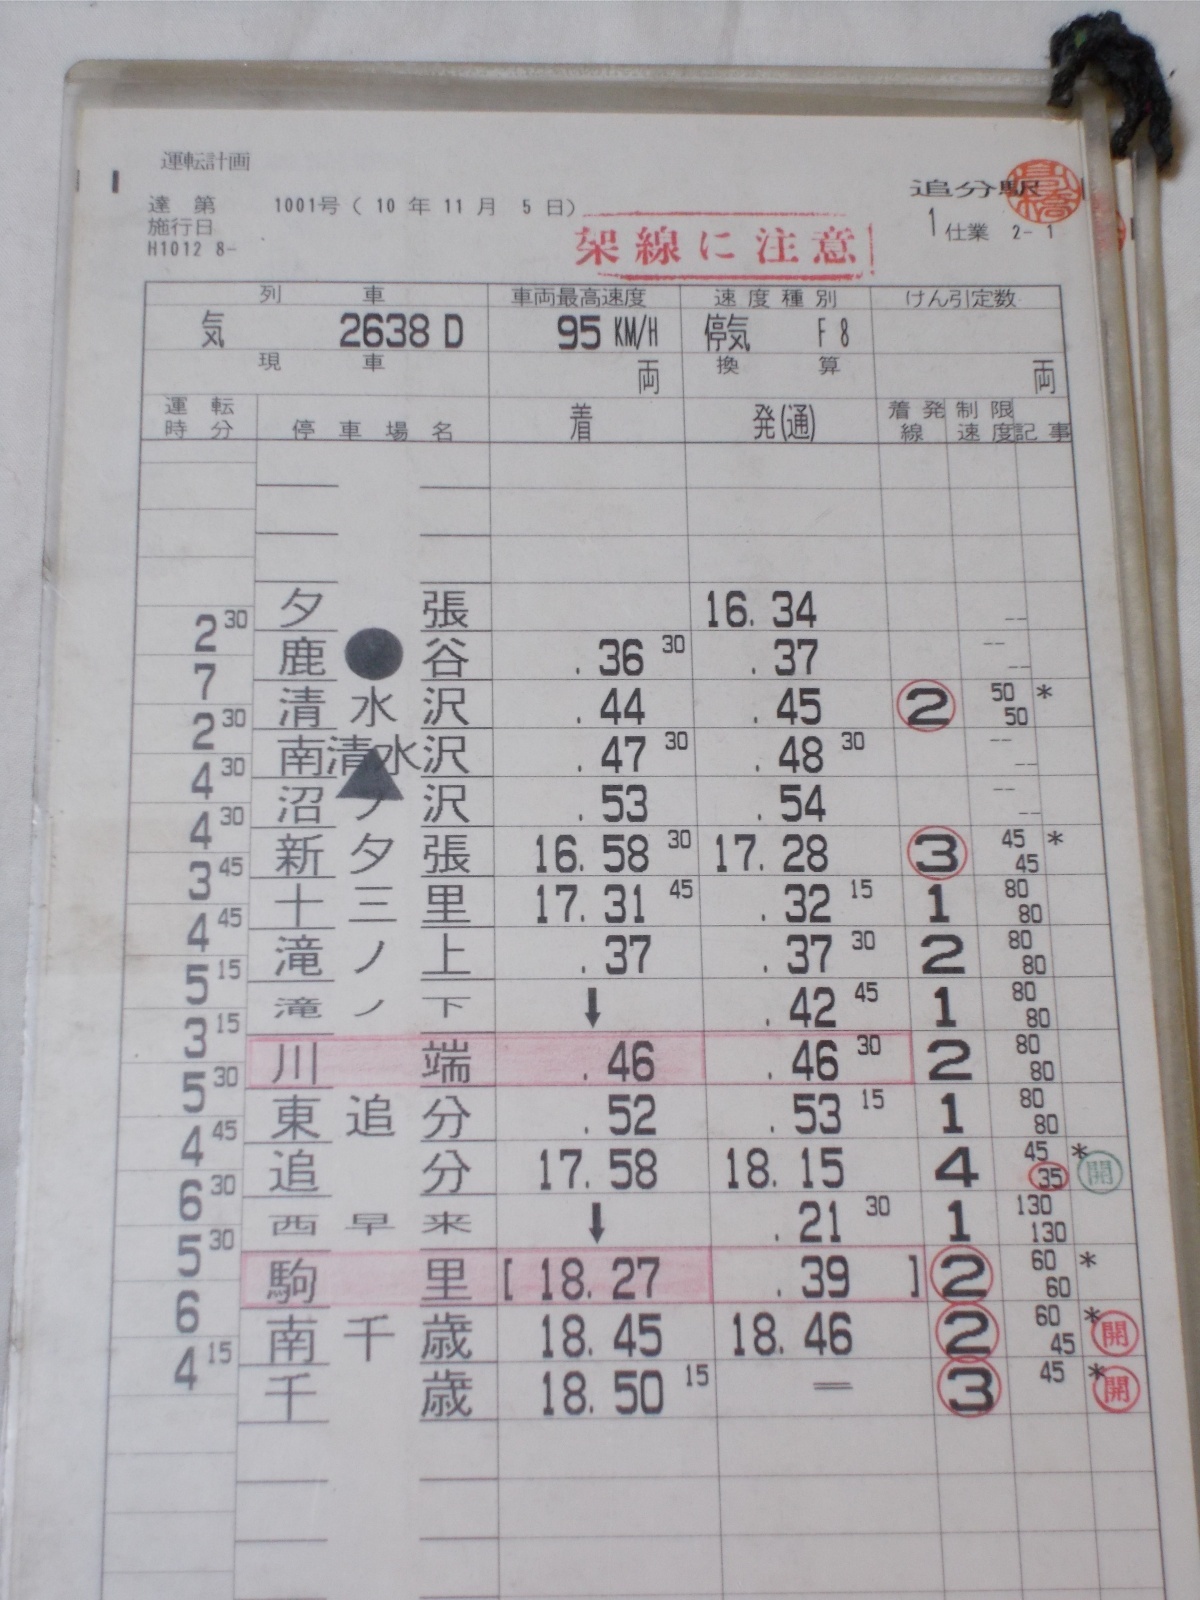 運転計画
達 第 1001号 ( 10 年 11 月 5 日)
施行日
H1012 8-
追分駅
1 仕業 2- 1
架線に注意
列 車 車両最高速度 速度種別 けん引定数
気 2638 D 95 KM/H 停気 F 8
現 車 両 換 算 両
運転時分 停車場名 着 発(通) 着発線 制限速度 記事
夕 張 16. 34 --
2 30
鹿 谷 . 36 30 . 37 -- --
7
清 水 沢 . 44 . 45 2 50 50 *
2 30
南清水沢 . 47 30 . 48 30 -- --
4 30
沼 ノ 沢 . 53 . 54 -- --
4 30
新 夕 張 16. 58 30 17. 28 3 45 45 *
3 45
十 三 里 17. 31 45 . 32 15 1 80 80
4 45
滝 ノ 上 . 37 . 37 30 2 80 80
5 15
滝 ノ 下 ↓ . 42 45 1 80 80
3 15
川 端 . 46 . 46 30 2 80 80
5 30
東 追 分 . 52 . 53 15 1 80 80
4 45
追 分 17. 58 18. 15 4 45 35 * 開
6 30
西 早 来 ↓ . 21 30 1 130 130
5 30
駒 里 [ 18. 27 . 39 ] 2 60 60 *
6
南 千 歳 18. 45 18. 46 2 60 45 * 開
4 15
千 歳 18. 50 15 = 3 45 * 開